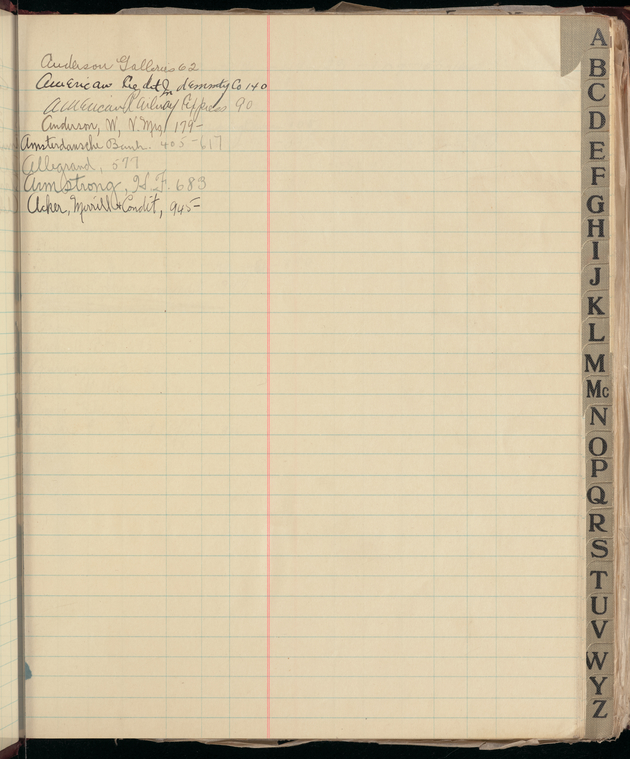 Anderson Galleries 62
American Credit Indemnity Co 140
American Railway Express 90
Anderson, W, N. Mrs, 179-
Amsterdamsche Bank. 405-617
Allegrand, 577
Armstrong, H. F. 683
Acker, Merrill & Condit, 945-
A
B
C
D
E
F
G
H
I
J
K
L
M
Mc
N
O
P
Q
R
S
T
U
V
W
Y
Z